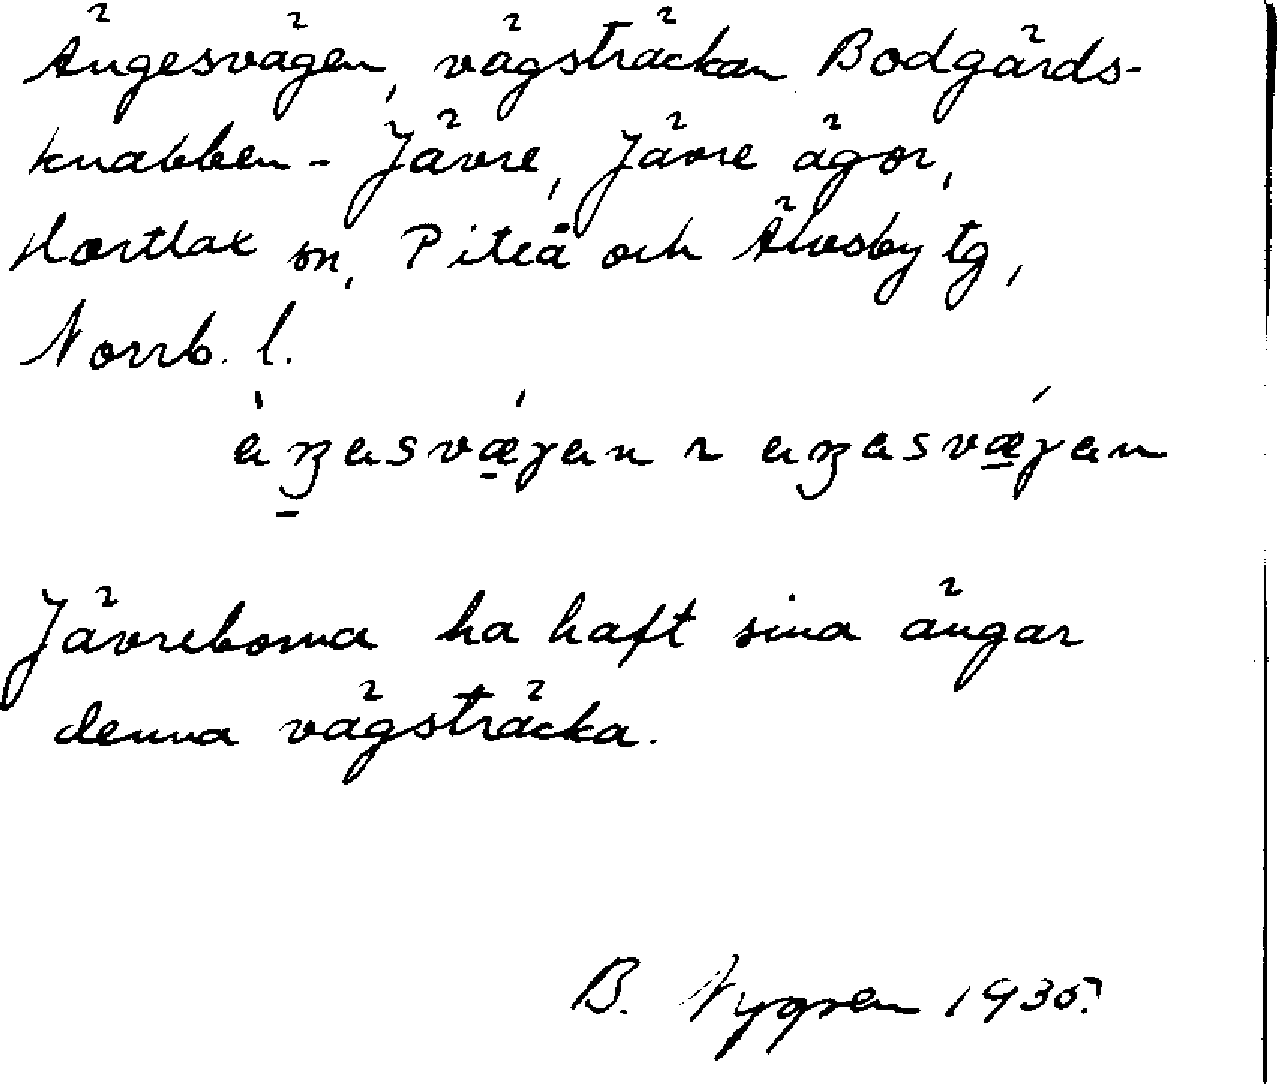 Ängesvägen, vägsträckan Bodgårds-
knabben - Jävre, Jävre ägor,
Hortlax sn, Piteå och Älvsby tg,
Norrb. l.
Jävreborna ha haft sina ängar
denna vägsträcka.
B. Nygren 1935.